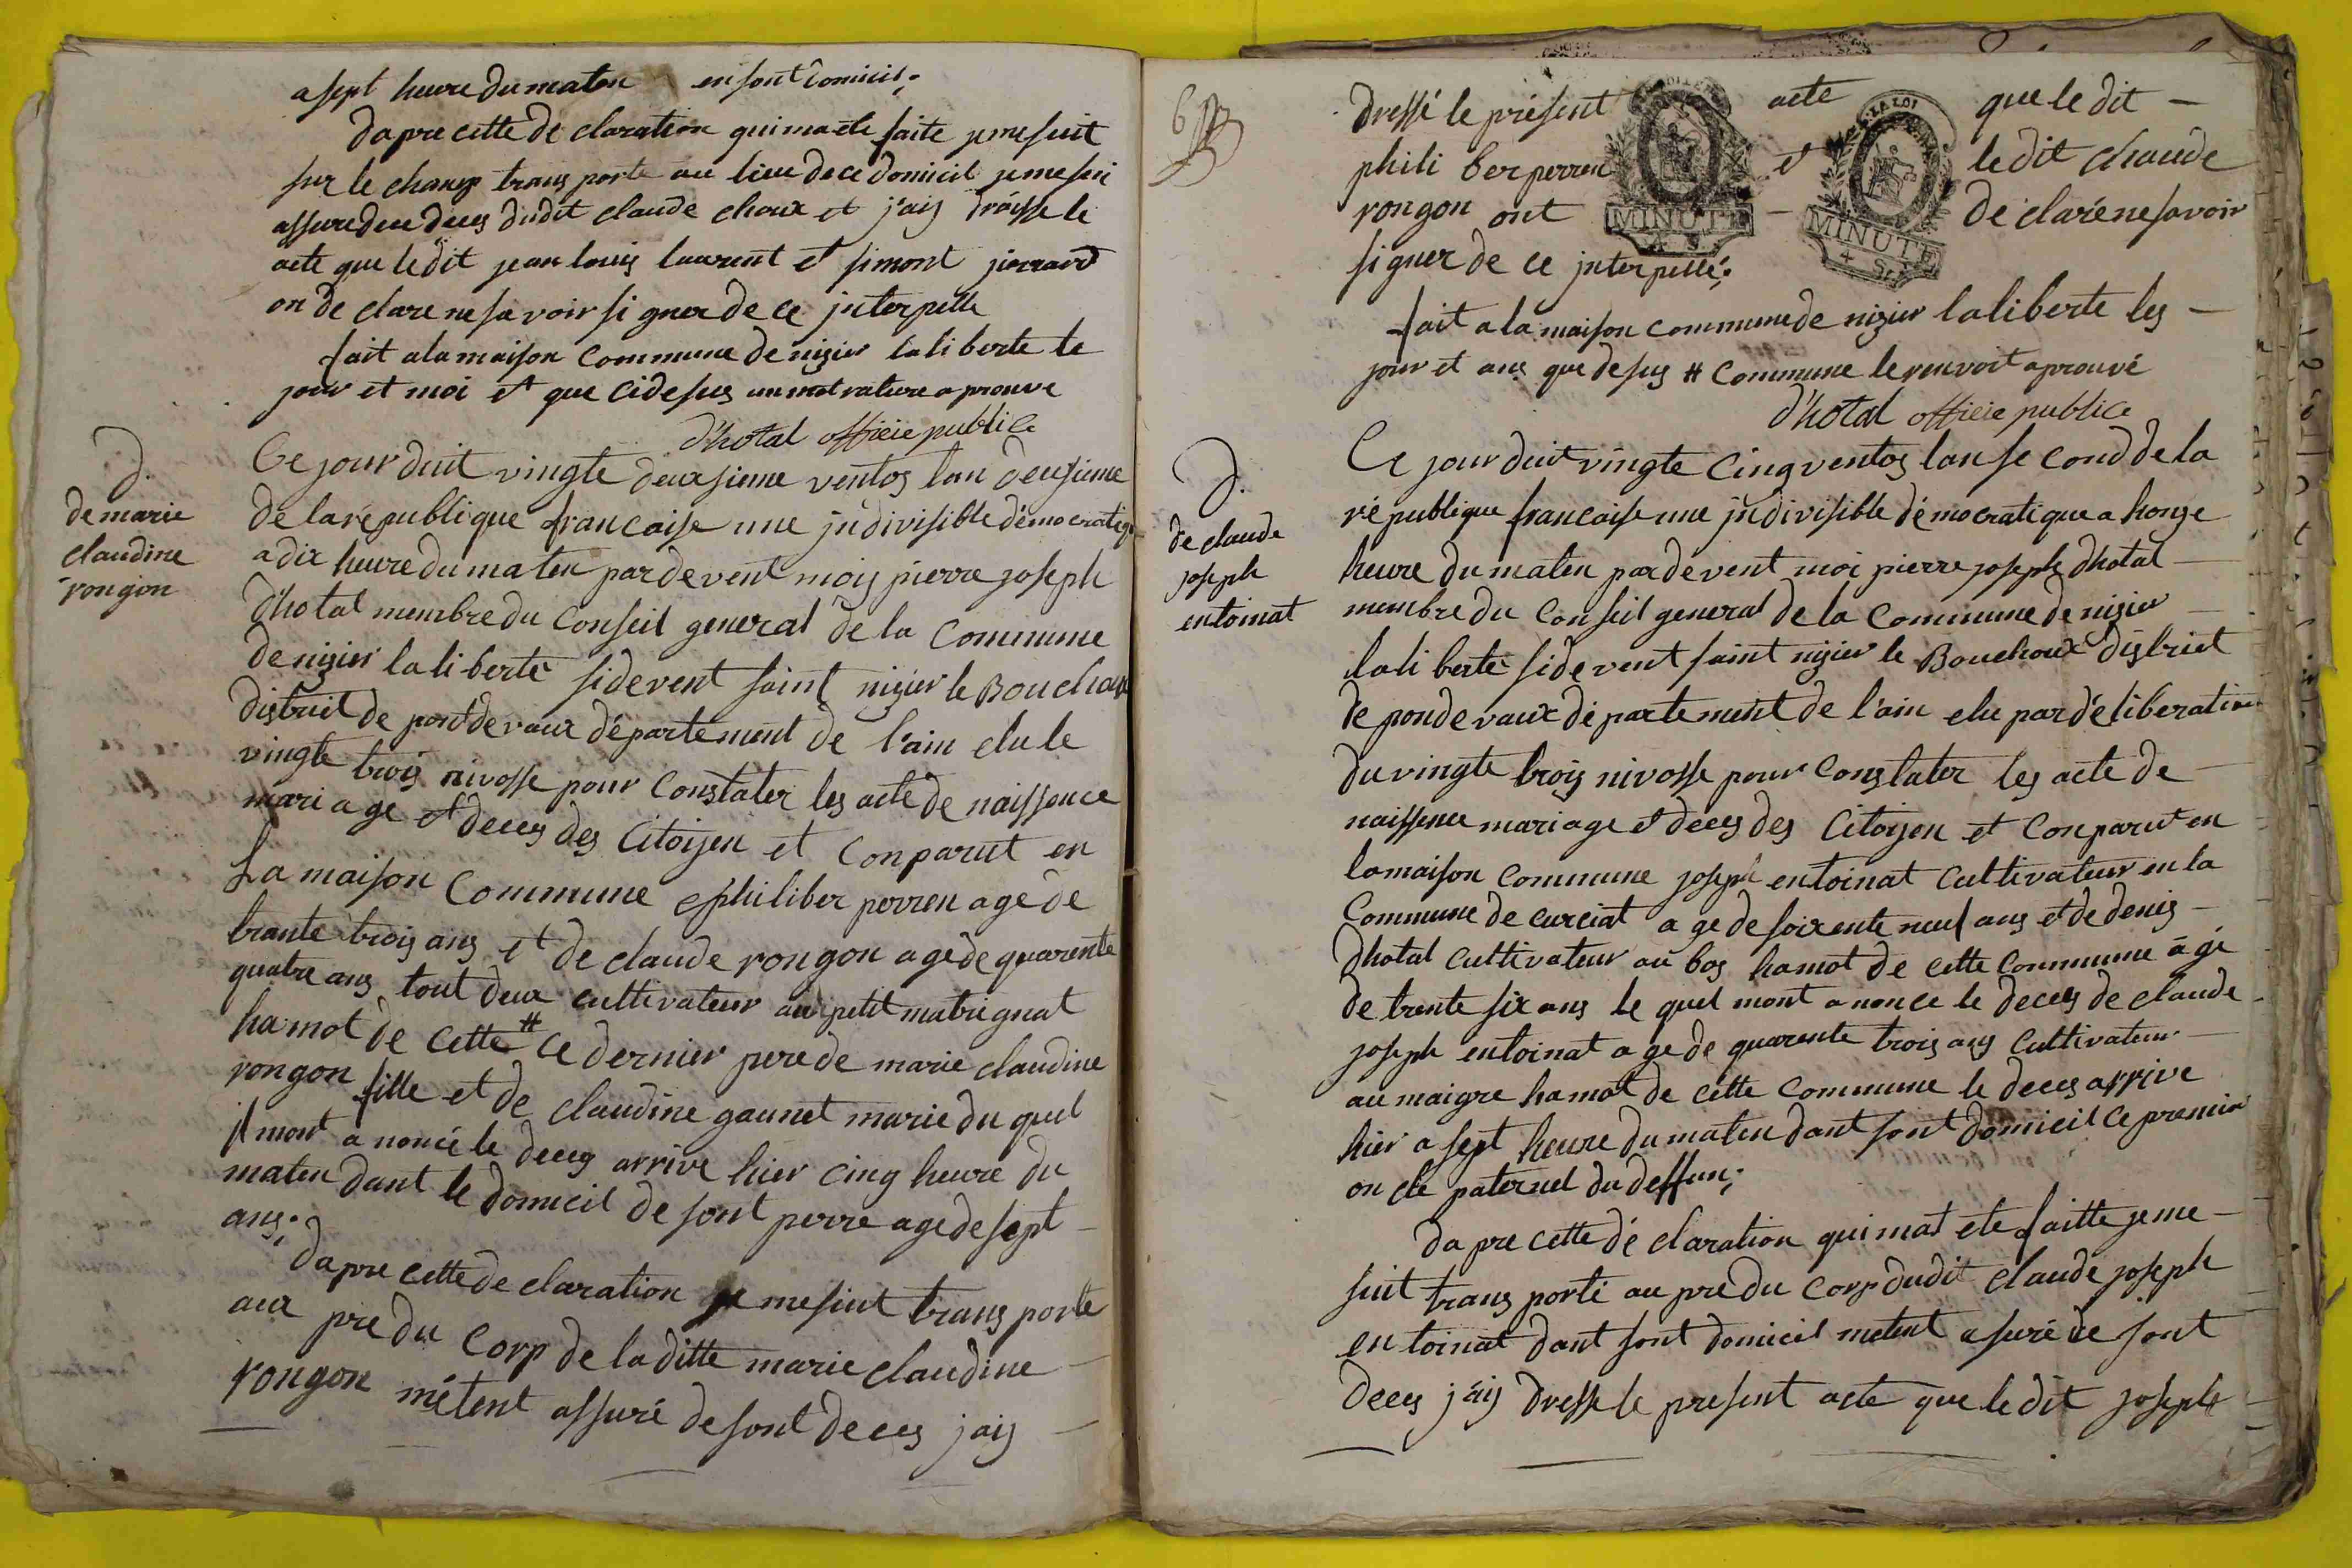 a sept heure du maten en sont domicil;
dapre cette de claration qui ma ete faite je me suit
sur le champ trans porte au lieu de ce domicil je me sui
assure du deces du dit claude choux et j'ais draisse le
acte que le dit jean louis laurent et simont jirrard
on de clare ne sa voir si gner de ce interpelle
fait a la maison commune de nizier la li berte le
jour et moi et que ci desus un mot rature a prouve
d'hotal officie publice
D.
de marie
claudine
rongon
Ce jour duit vingte deuxsieme ventos lan deusieme
de la republique francaise une indivisible démocratiq
a dix heure du maten par devent mois pierre joseph
d'hotal membre du conseil general de la commune
de nizier la li berte si devent saint nizier le Bouchoux
distruit de pont de vaux département de l'ain elu le
vingte trois nivosse pour constater les acte de naissence
mari age et deces des citoijen et conparut en
La maison commune philiber perren age de
trante trois ans et de claude rongon age de quarente
quatre ans tout deux cultivateur au petit matrignat
ha mot de cette # ce dernier pere de marie claudine
rongon fille et de claudine gaunet marie du quel
il mont a noncé le deces arrive hier cinq heure du
maten dant le domicil de sont perre age de sept
ans;
dapre cette de claration je me suit trans porte
aux pre du corp de la ditte marie claudine
rongon métent assuré de sont deces jais
6
dressé le présent acte que le dit
phili ber perren et le dit claude
rongon ont de claré ne savoir
LA LOI
MINUTE
4 S
MINUTE
4 S
signer de ce interpellé;
fait a la maison commune de nizier la liberte les
jour et ans que desus # commune le renvoit aprouvé
d'hotal officie publice
D.
de claude
joseph
entoinat
Ce jour duit vingte cinq ventos lan se cond de la
ré publique francaise une indivisible démocratique a honze
heure du maten par devent moi pierre joseph dhotal
membre du conseil general de la commune de nizier
la li berte si devent saint nizier le Bouchoux district
de ponde vaux département de l'ain elu par déliberation
du vingte trois nivosse pour constater les acte de
naissence mariage et deces des citoijen et conparut en
la maison commune joseph entoinat cultivateur en la
commune de curciat a ge de soixente neuf ans et de denis
dhotal cultivateur au bos hamot de cette commune agé
de trente six ans le quel mont a nonce le deces de claude
joseph entoinat a ge de quarente trois ans cultivateur
au maigre hamot de cette commune le deces arrive
hier a sept heure du maten dant sont domicil ce premier
on cle paternel du deffun;
da pre cette dé claration qui mat ete faitte je me
suit trans porté au pre du corp dudit claude joseph
en toinat dant sont domicil metent a suré de sont
deces j'ais dresse le present acte que le dit joseph